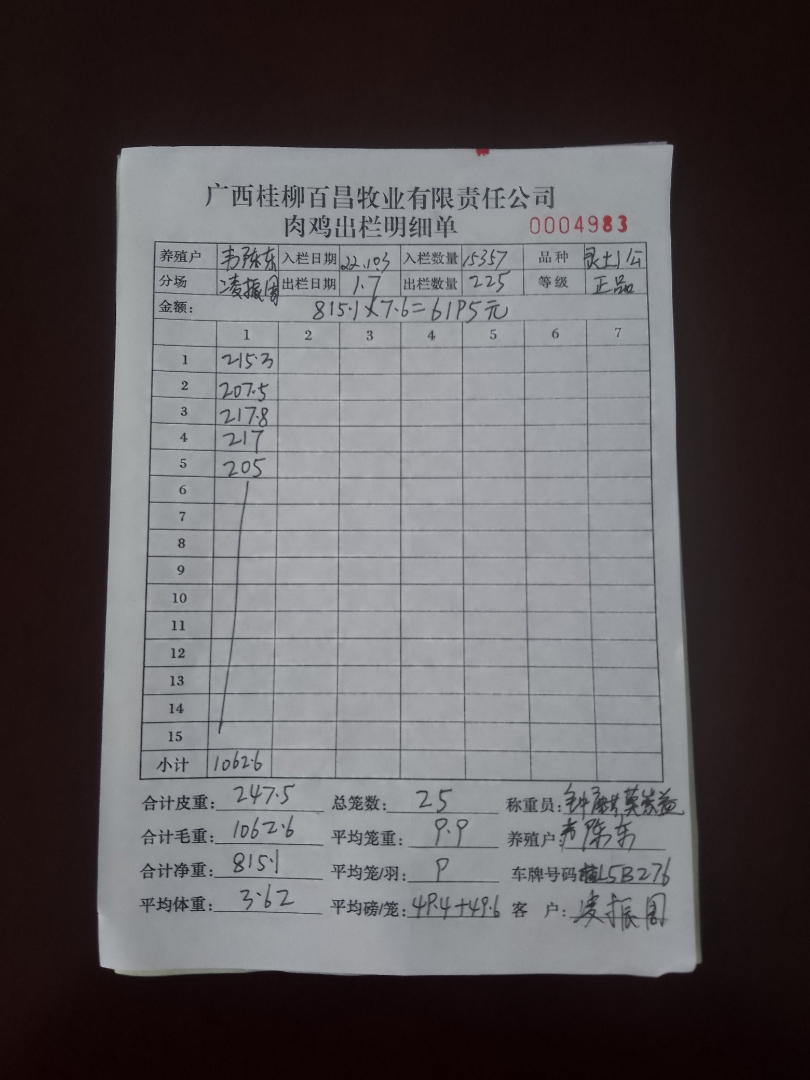 广西桂柳百昌牧业有限责任公司
肉鸡出栏明细单 0004983
养殖户 韦陈东 入栏日期 22.10.3 入栏数量 15357 品种 灵土公
分场 凌振国 出栏日期 1.7 出栏数量 225 等级 正品
金额: 815.1×7.6=6195元
1 2 3 4 5 6 7
1 215.3
2 207.5
3 217.8
4 217
5 205
6
7
8
9
10
11
12
13
14
15
小计 1062.6
合计皮重: 247.5 总笼数: 25 称重员:
合计毛重: 1062.6 平均笼重: 9.9 养殖户: 韦陈东
合计净重: 815.1 平均笼/羽: 9 车牌号码 桂L5B276
平均体重: 3.62 平均磅/笼: 49.4+49.6 客 户: 凌振国